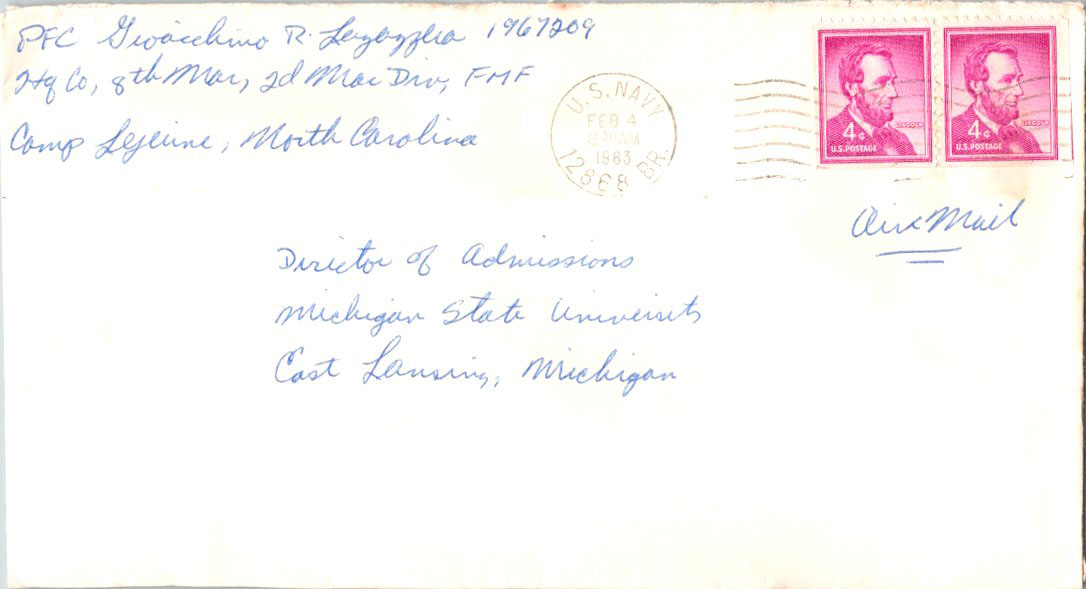 PFC Gioacchino R. 1967209
Hq Co, 8th Mar, 2d Mar Div, FMF
Camp Lejeune, North Carolina
U.S. NAVY
FEB 4
AM
1963
12868 BR.
4¢
LINCOLN
U.S. POSTAGE
4¢
LINCOLN
U.S. POSTAGE
Air Mail
Director of Admissions
Michigan State University
East Lansing, Michigan